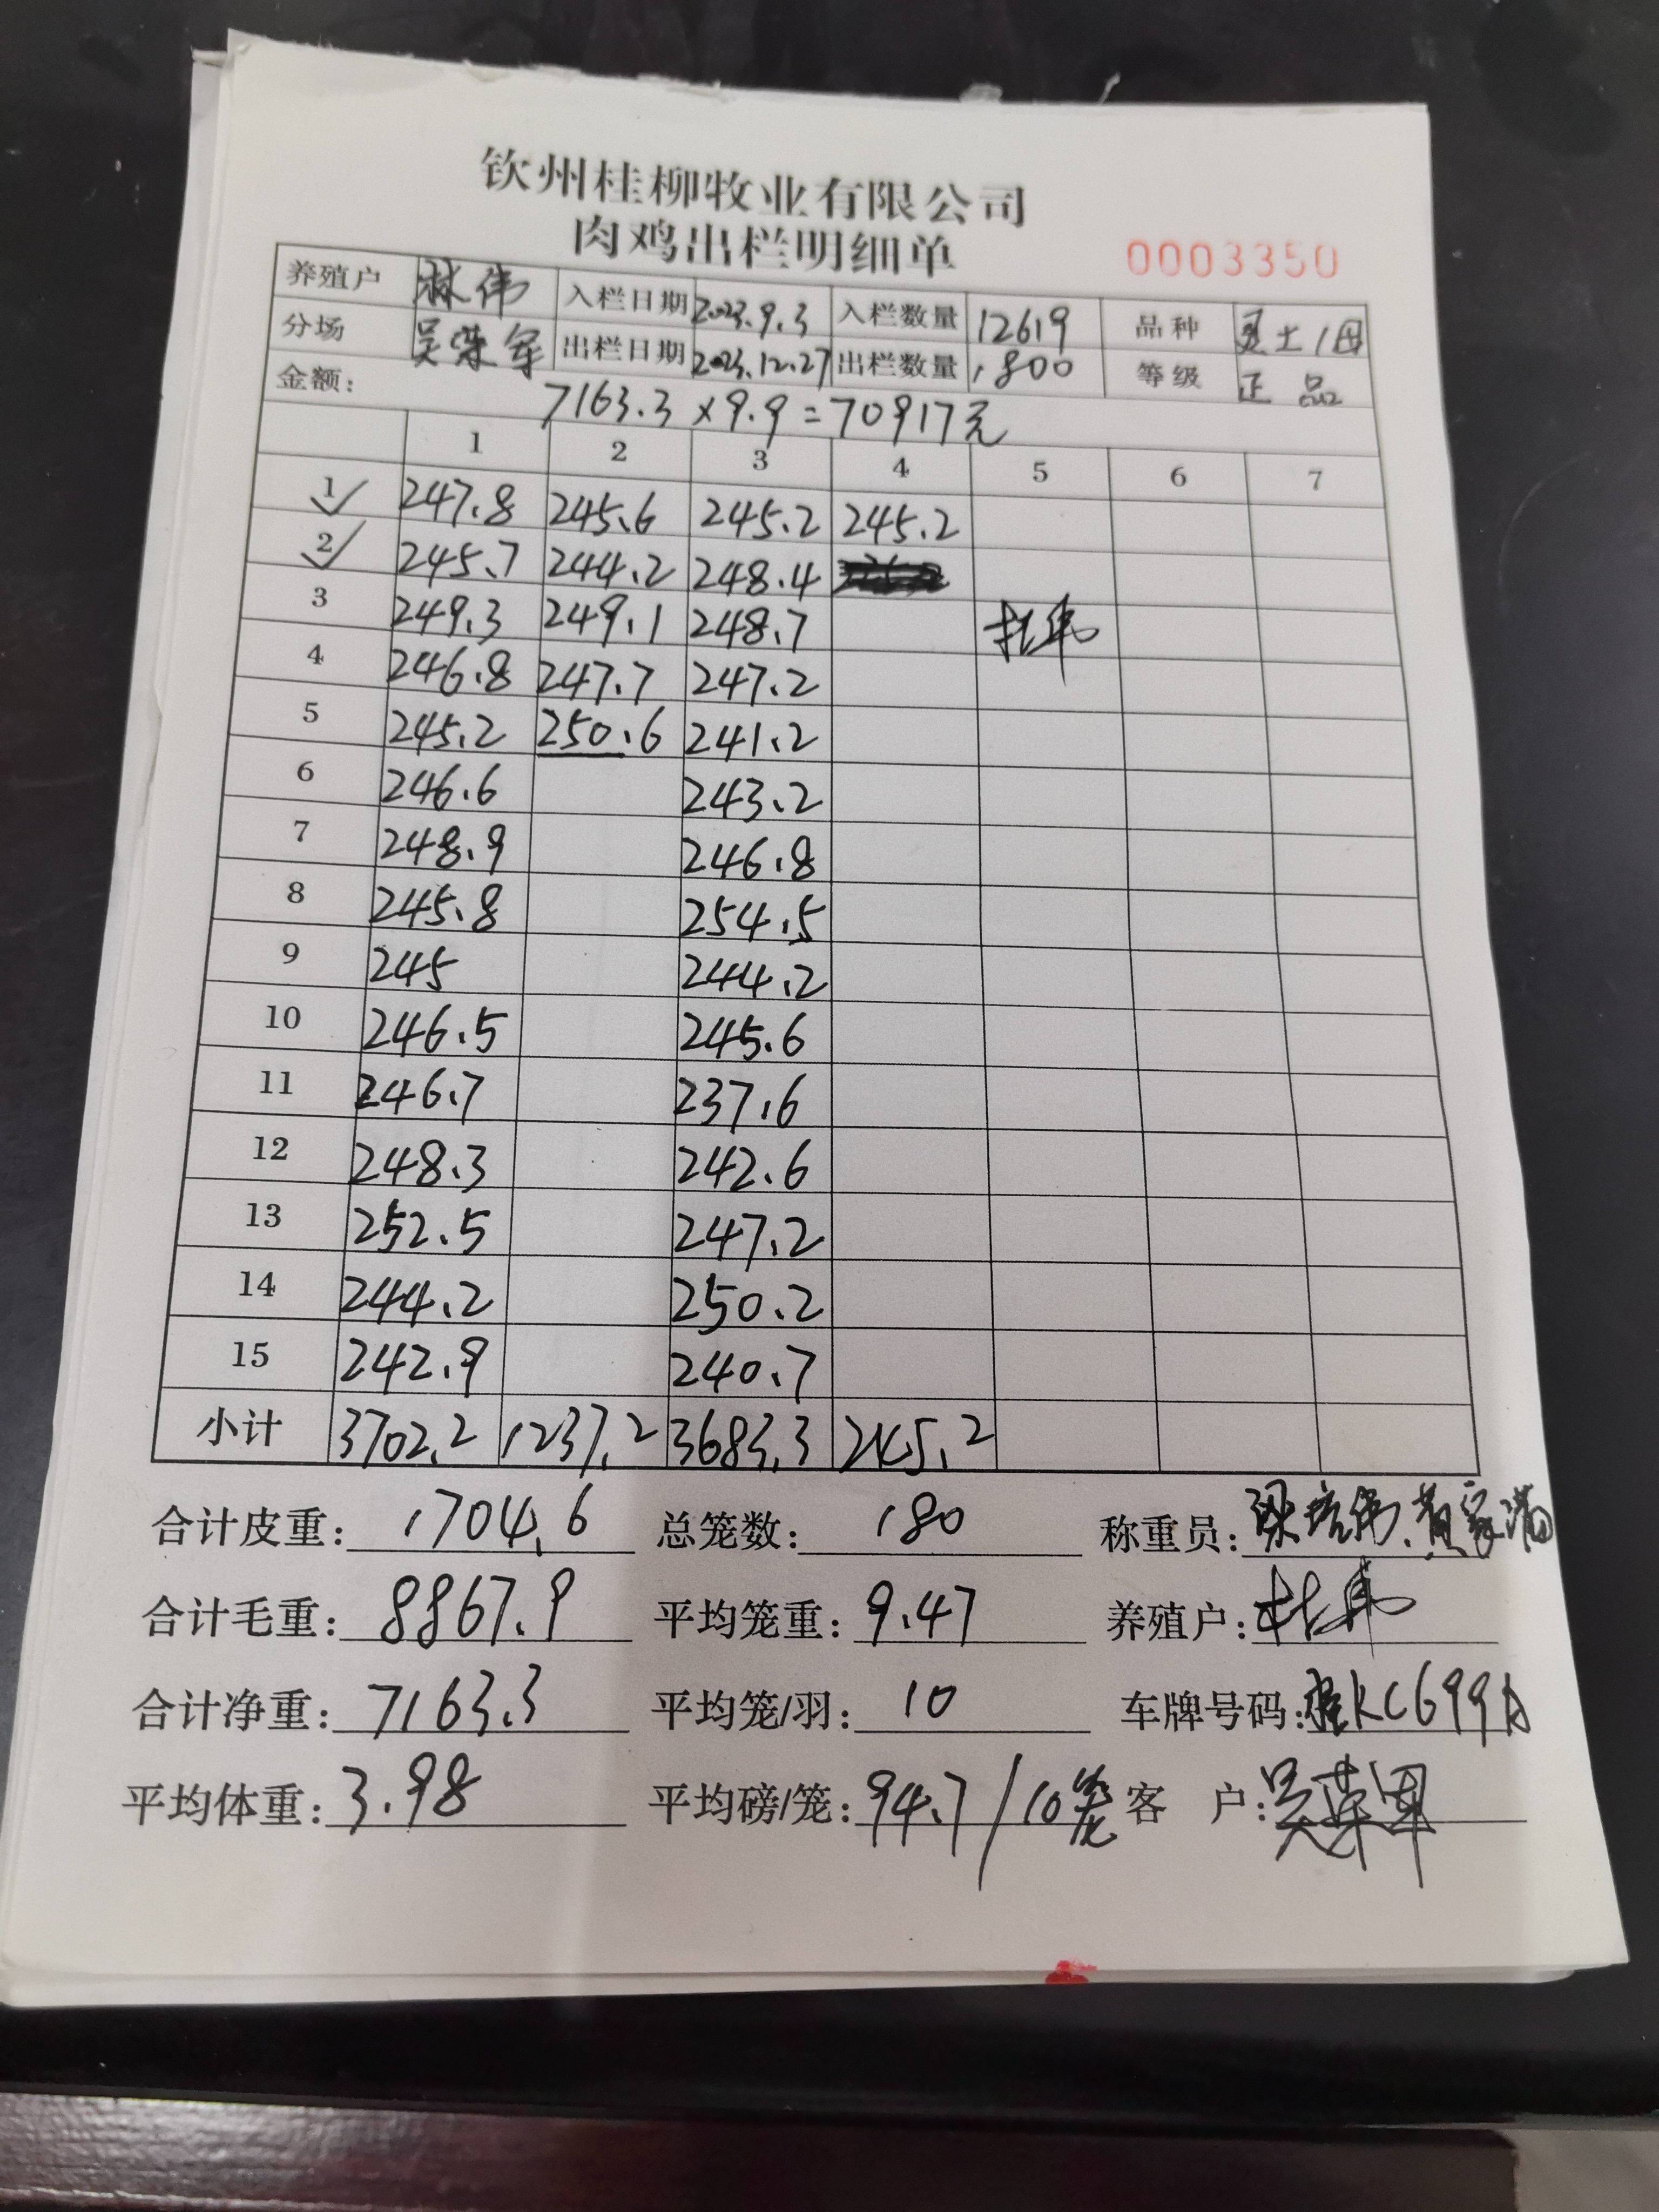 钦州桂柳牧业有限公司
肉鸡出栏明细单 0003350
养殖户 林伟 入栏日期 2023.9.3 入栏数量 12619 品种 土1母
分场 吴荣军 出栏日期 2023.12.27 出栏数量 1800 等级 正品
金额: 7163.3×9.9=70917元
1 2 3 4 5 6 7
1✓ 247.8 245.6 245.2 245.2
2✓ 245.7 244.2 248.4
3 249.3 249.1 248.7 林伟
4 246.8 247.7 247.2
5 245.2 250.6 241.2
6 246.6 243.2
7 248.9 246.8
8 245.8 254.5
9 245 244.2
10 246.5 245.6
11 246.7 237.6
12 248.3 242.6
13 252.5 247.2
14 244.2 250.2
15 242.9 240.7
小计 3702.2 1237.2 3683.3 245.2
合计皮重: 1704.6 总笼数: 180 称重员: 梁培伟、黄家满
合计毛重: 8867.9 平均笼重: 9.47 养殖户: 林伟
合计净重: 7163.3 平均笼/羽: 10 车牌号码: 桂KC699A
平均体重: 3.98 平均磅/笼: 94.7/10笼 客 户: 吴荣军